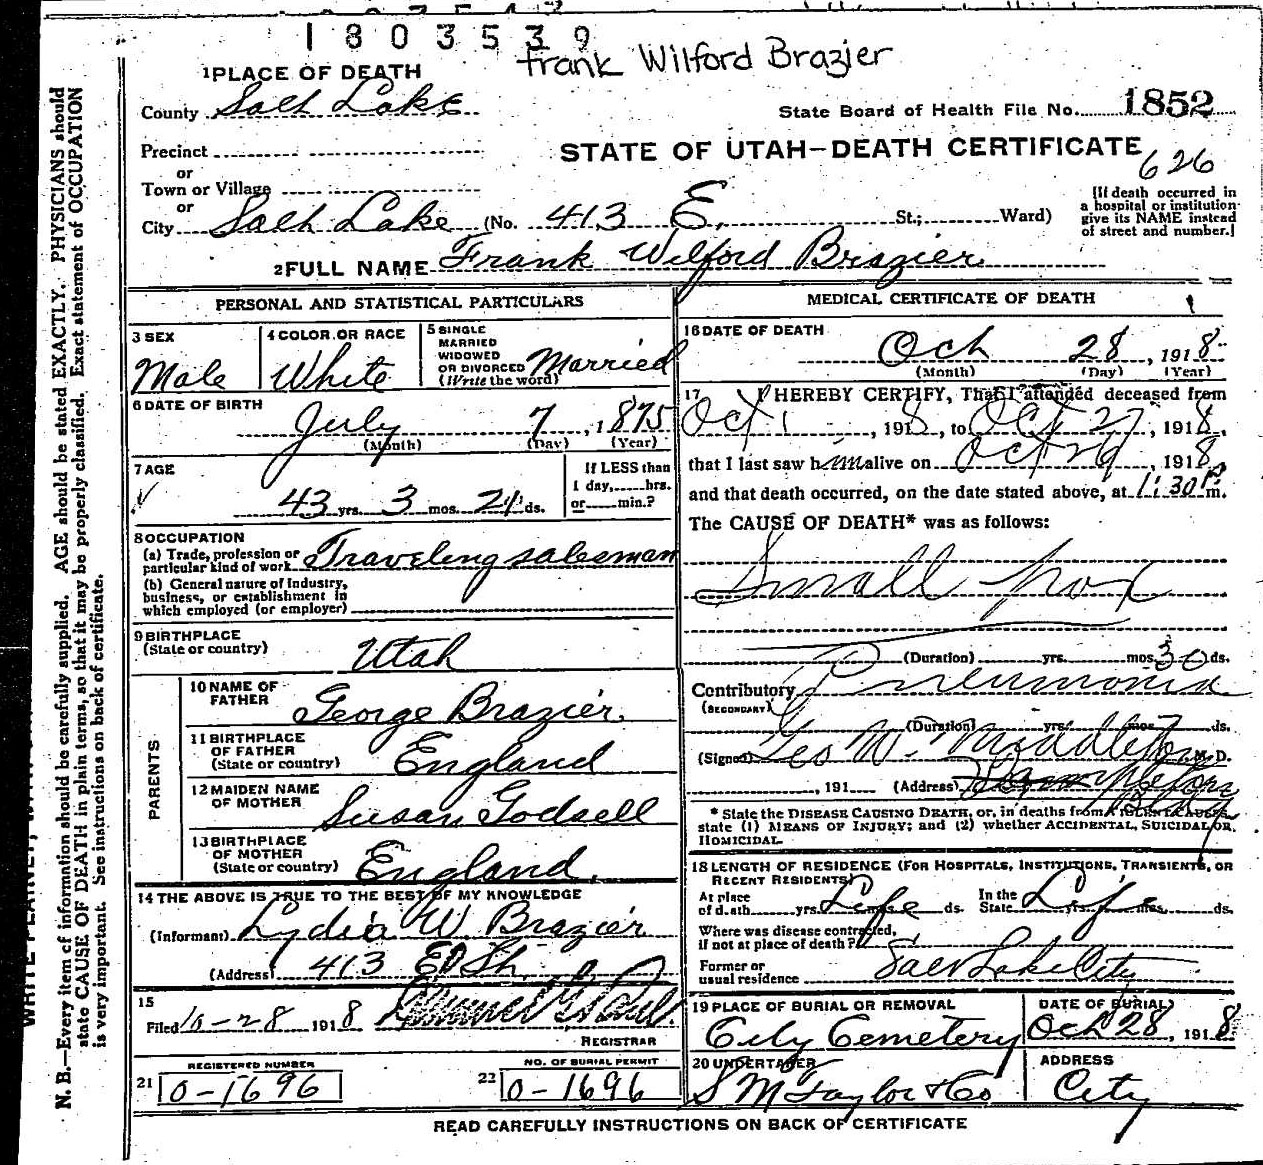 1803539
Frank Wilford Brazier
1 PLACE OF DEATH
County Salt Lake
State Board of Health File No. 1852
Precinct
STATE OF UTAH—DEATH CERTIFICATE
626
or
Town or Village
or
City Salt Lake (No. 413 E. St.; Ward)
[If death occurred in
a hospital or institution
give its NAME instead
of street and number.]
2 FULL NAME Frank Wilford Brazier
PERSONAL AND STATISTICAL PARTICULARS
3 SEX Male
4 COLOR OR RACE White
5 SINGLE
MARRIED
WIDOWED
OR DIVORCED Married
(Write the word)
6 DATE OF BIRTH
July 7, 1875
(Month) (Day) (Year)
7 AGE
43 yrs. 3 mos. 21 ds.
If LESS than
1 day, hrs.
or min.?
8 OCCUPATION
(a) Trade, profession or
particular kind of work Traveling salesman
(b) General nature of Industry,
business, or establishment in
which employed (or employer)
9 BIRTHPLACE
(State or country) Utah
PARENTS
10 NAME OF
FATHER George Brazier
11 BIRTHPLACE
OF FATHER
(State or country) England
12 MAIDEN NAME
OF MOTHER Susan Godsell
13 BIRTHPLACE
OF MOTHER
(State or country) England
14 THE ABOVE IS TRUE TO THE BEST OF MY KNOWLEDGE
(Informant) Lydia W. Brazier
(Address) 413 E St.
15
Filed 10-28 1918
REGISTRAR
REGISTERED NUMBER
21 0-1696
NO. OF BURIAL PERMIT
22 0-1696
MEDICAL CERTIFICATE OF DEATH
16 DATE OF DEATH
Oct 28, 1918
(Month) (Day) (Year)
17 I HEREBY CERTIFY, That I attended deceased from
Oct 1, 1918, to Oct 27, 1918,
that I last saw him alive on Oct, 1918,
and that death occurred, on the date stated above, at 11:30 P m.
The CAUSE OF DEATH* was as follows:
Small pox
(Duration) yrs. mos. 30 ds.
Contributory Pneumonia
(SECONDARY)
(Duration) yrs. mos. 7 ds.
(Signed) Geo W. Middleton, M. D.
, 191 (Address)
* State the DISEASE CAUSING DEATH, or, in deaths from VIOLENT CAUSES,
state (1) MEANS OF INJURY; and (2) whether ACCIDENTAL, SUICIDAL, OR
HOMICIDAL.
18 LENGTH OF RESIDENCE (FOR HOSPITALS, INSTITUTIONS, TRANSIENTS, OR
RECENT RESIDENTS)
At place
of death yrs. Life ds.
In the
State Life yrs. mos. ds.
Where was disease contracted,
if not at place of death?
Former or
usual residence Salt Lake City
19 PLACE OF BURIAL OR REMOVAL
City Cemetery
DATE OF BURIAL
Oct 28, 1918
20 UNDERTAKER
S M Taylor & Co
ADDRESS
City
READ CAREFULLY INSTRUCTIONS ON BACK OF CERTIFICATE
N. B.—Every item of information should be carefully supplied. AGE should be stated EXACTLY. PHYSICIANS should
state CAUSE OF DEATH in plain terms, so that it may be properly classified. Exact statement of OCCUPATION
is very important. See instructions on back of certificate.